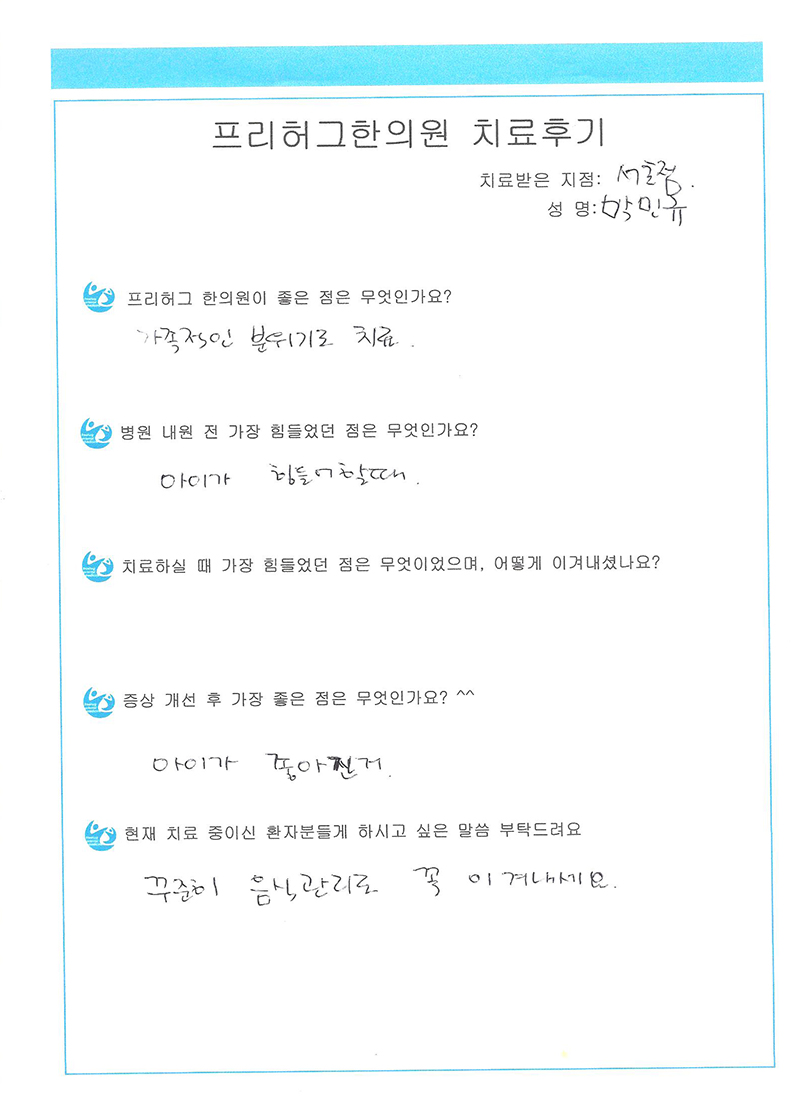 프리허그한의원 치료후기
치료받은 지점: 서초점.
성 명: 박민규
프리허그 한의원이 좋은 점은 무엇인가요?
가족적인 분위기로 치료.
병원 내원 전 가장 힘들었던 점은 무엇인가요?
아이가 힘들어할때.
치료하실 때 가장 힘들었던 점은 무엇이었으며, 어떻게 이겨내셨나요?
증상 개선 후 가장 좋은 점은 무엇인가요? ^^
아이가 좋아진거.
현재 치료 중이신 환자분들게 하시고 싶은 말씀 부탁드려요
꾸준히 음식관리로 꼭 이겨내세요.